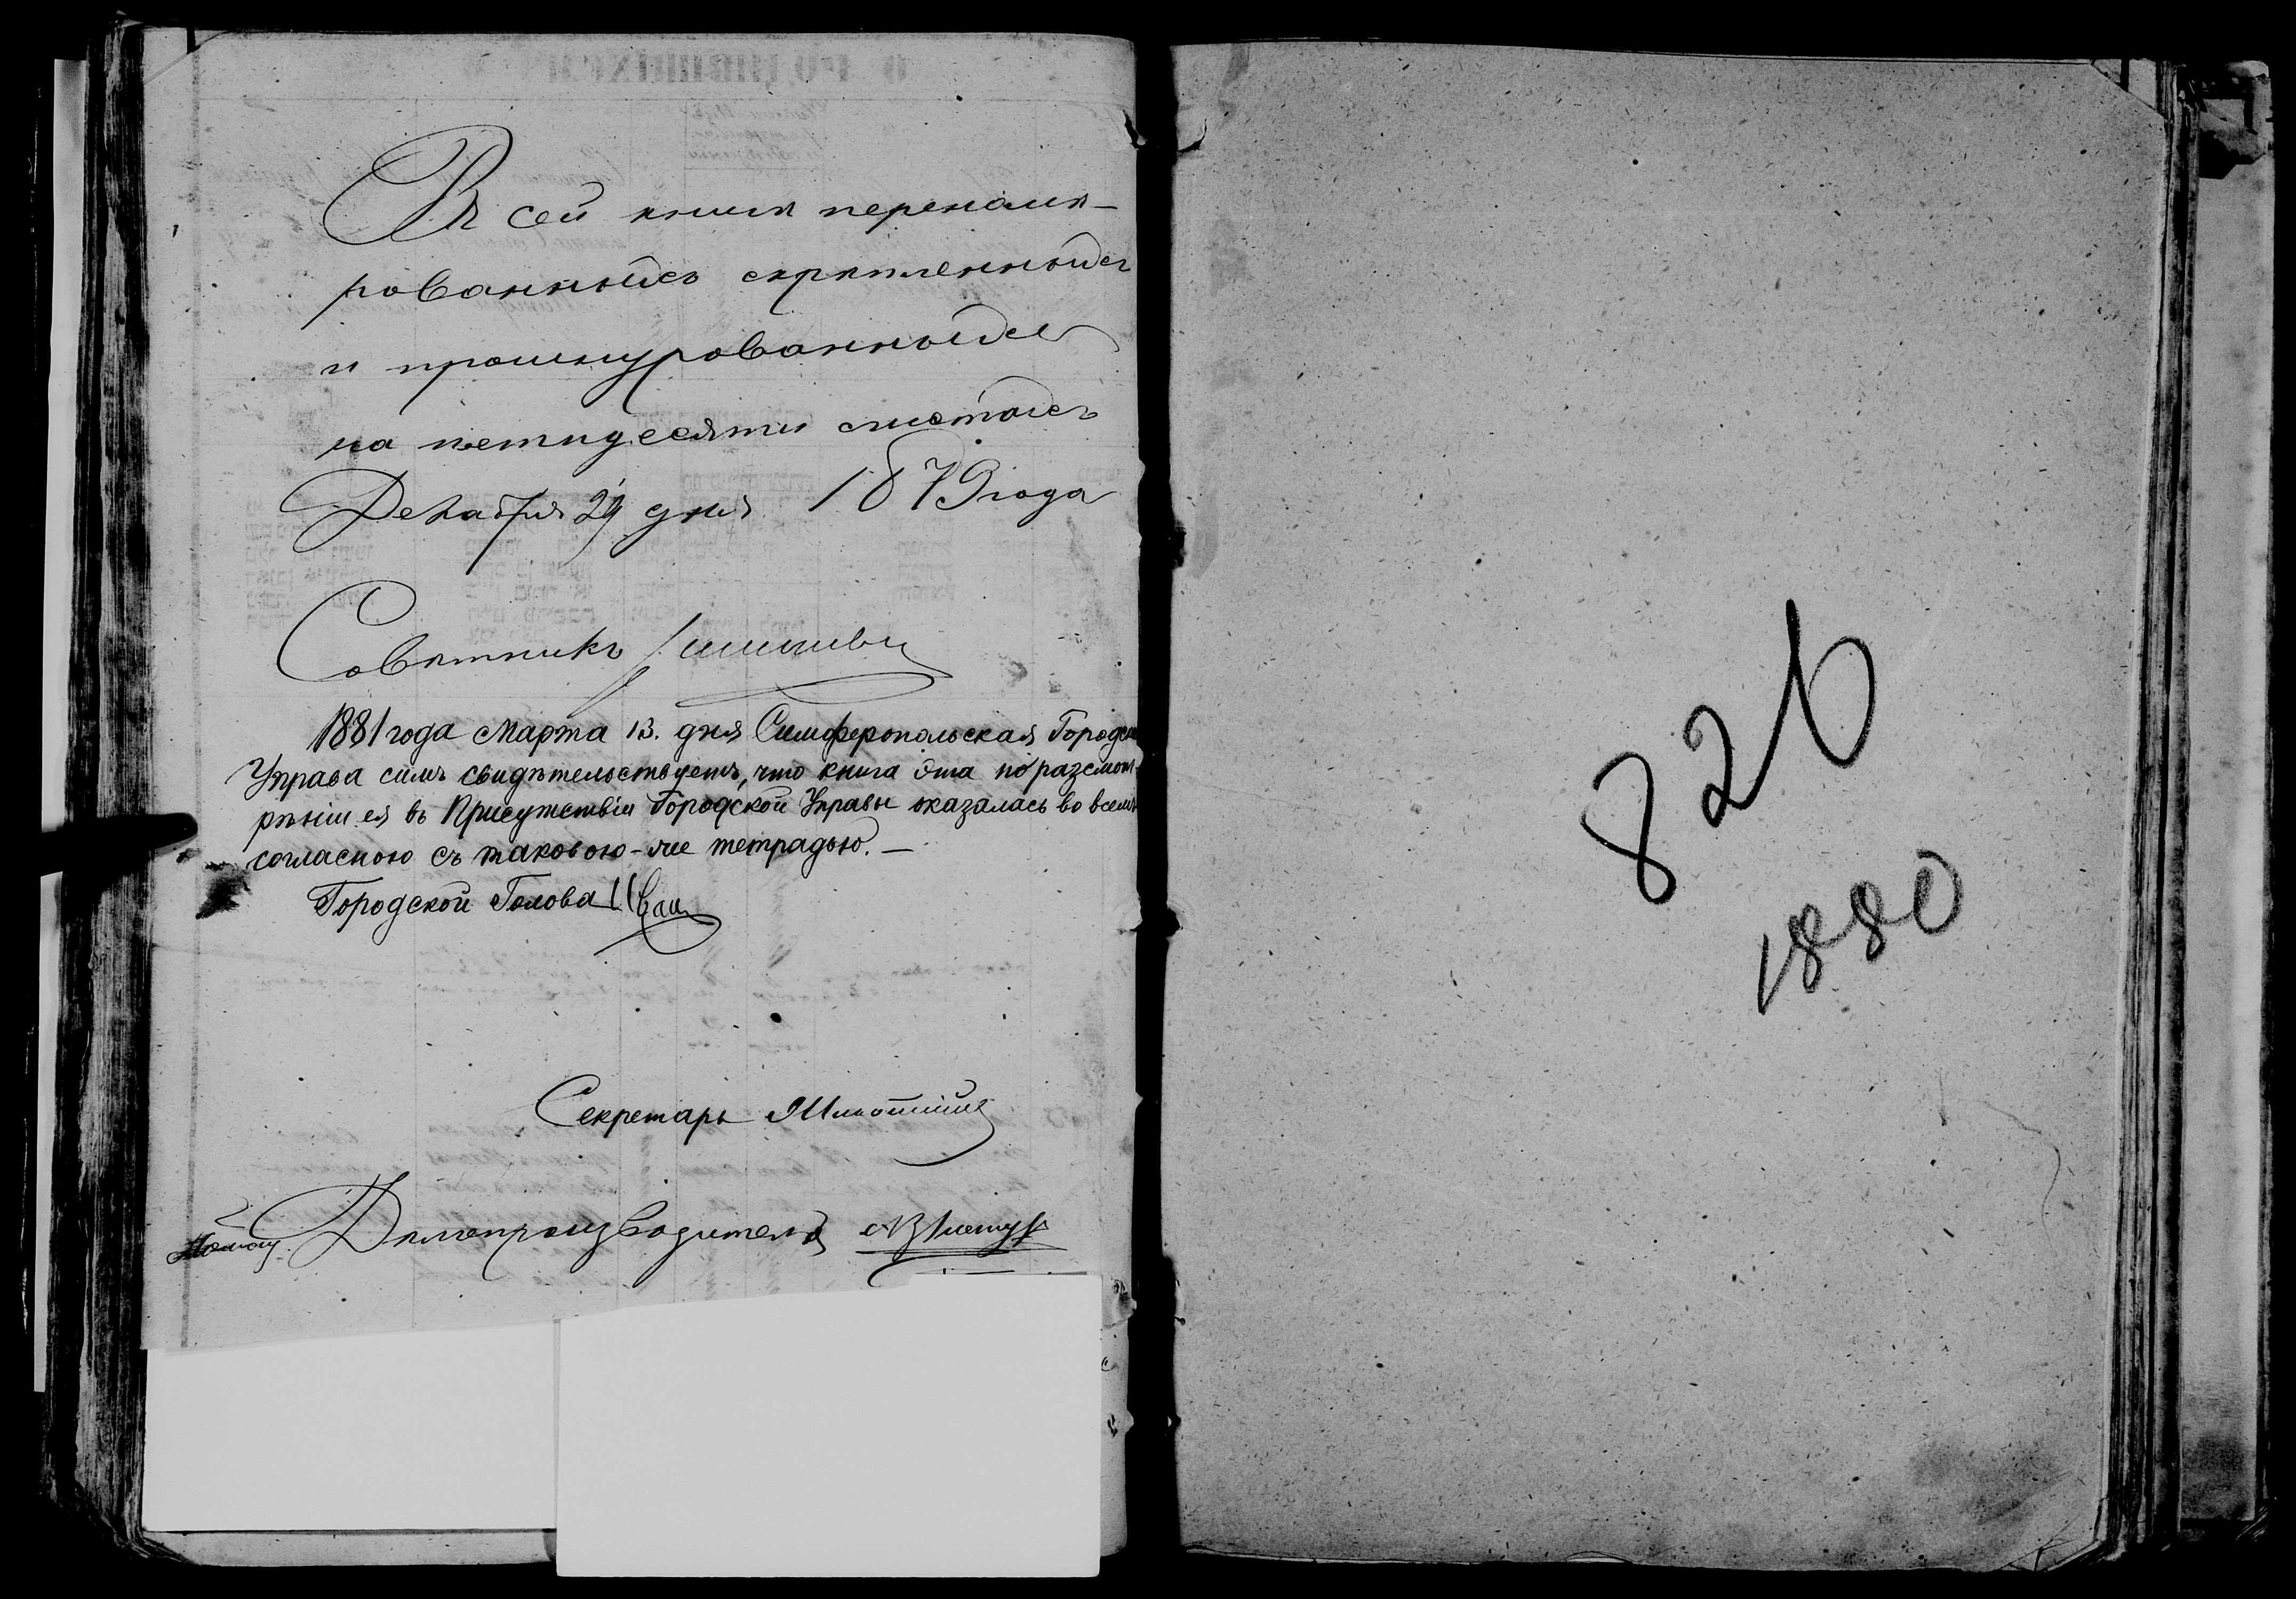 Въ сей книгѣ перенаме-
рованныхъ скрѣпленныхъ
и прошнурованныхъ
на петидесяти листахъ
Декабря 29 дня 1879 года
Совѣтникъ
1881 года Марта 13. дня Симферопольская Городская
Управа симъ свидѣтельствуетъ, что книга эта по разсмот-
рѣніи ея въ Присутствіи Городской Управы оказалась во всемъ
согласною съ таковою-же тетрадью. —
Городской Голова
Секретарь
Помощ. Дѣлопроизводителя
826
1880